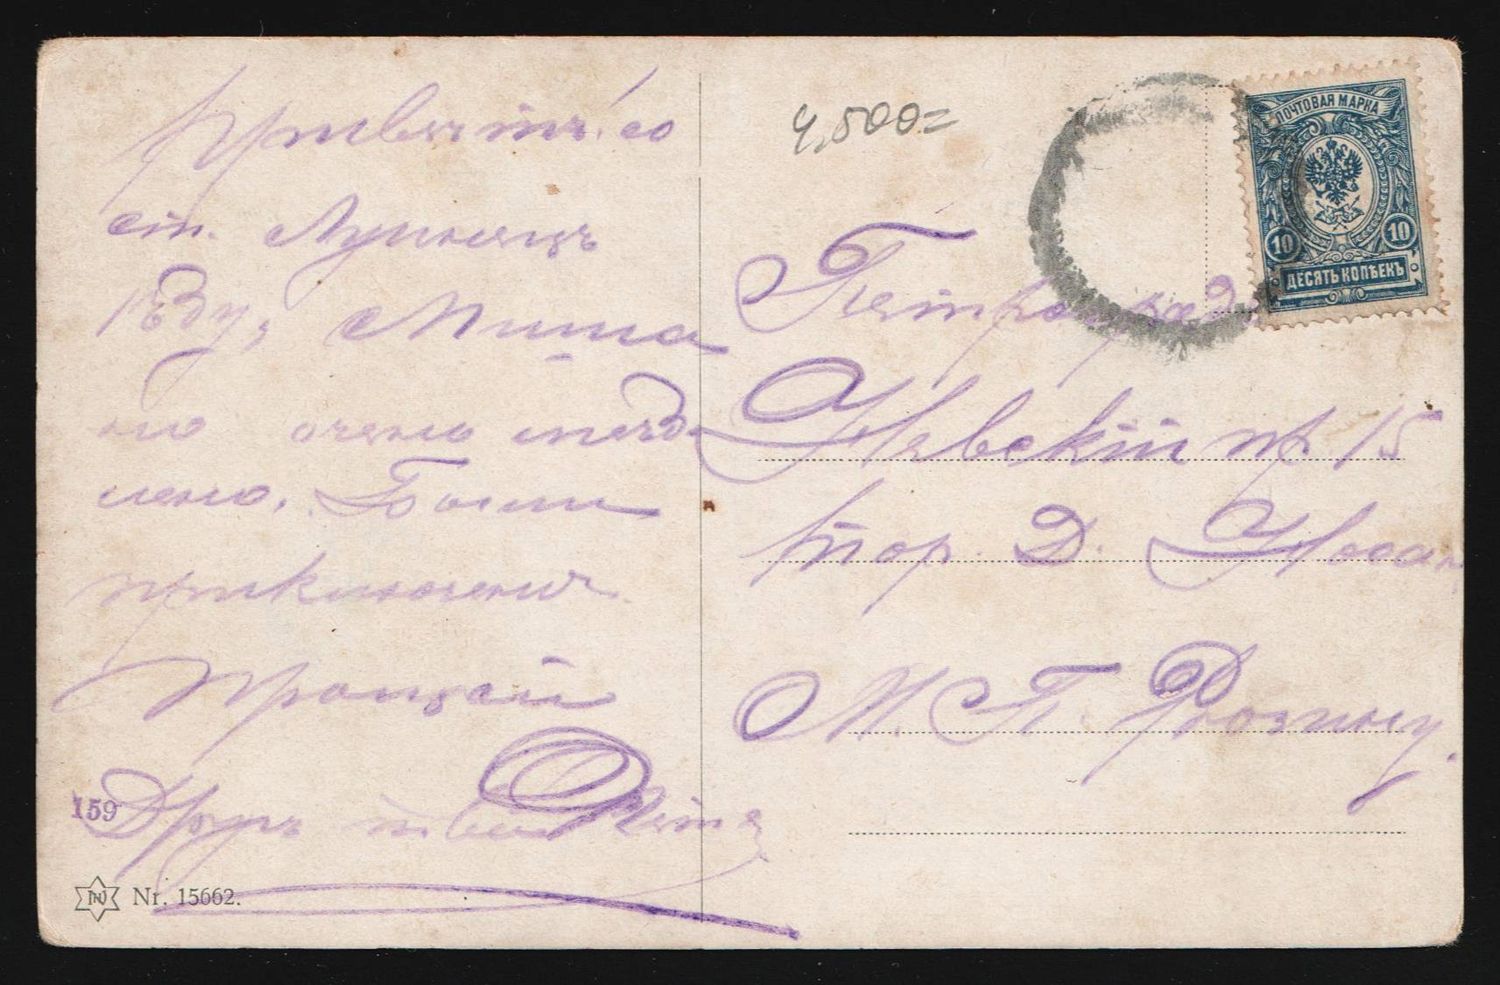 Привѣтъ со
ст. Лунинецъ
ѣду, с Миша
но очень
медленно. Были
приключенія
Троцкій
Другъ твой Митя
159
Nr. 15662.
4,500=
ПОЧТОВАЯ МАРКА
10 10
ДЕСЯТЬ КОПѢЕКЪ
Петроградъ
Невскій пр. 15
Тор. Д.
М. П. Рогину.